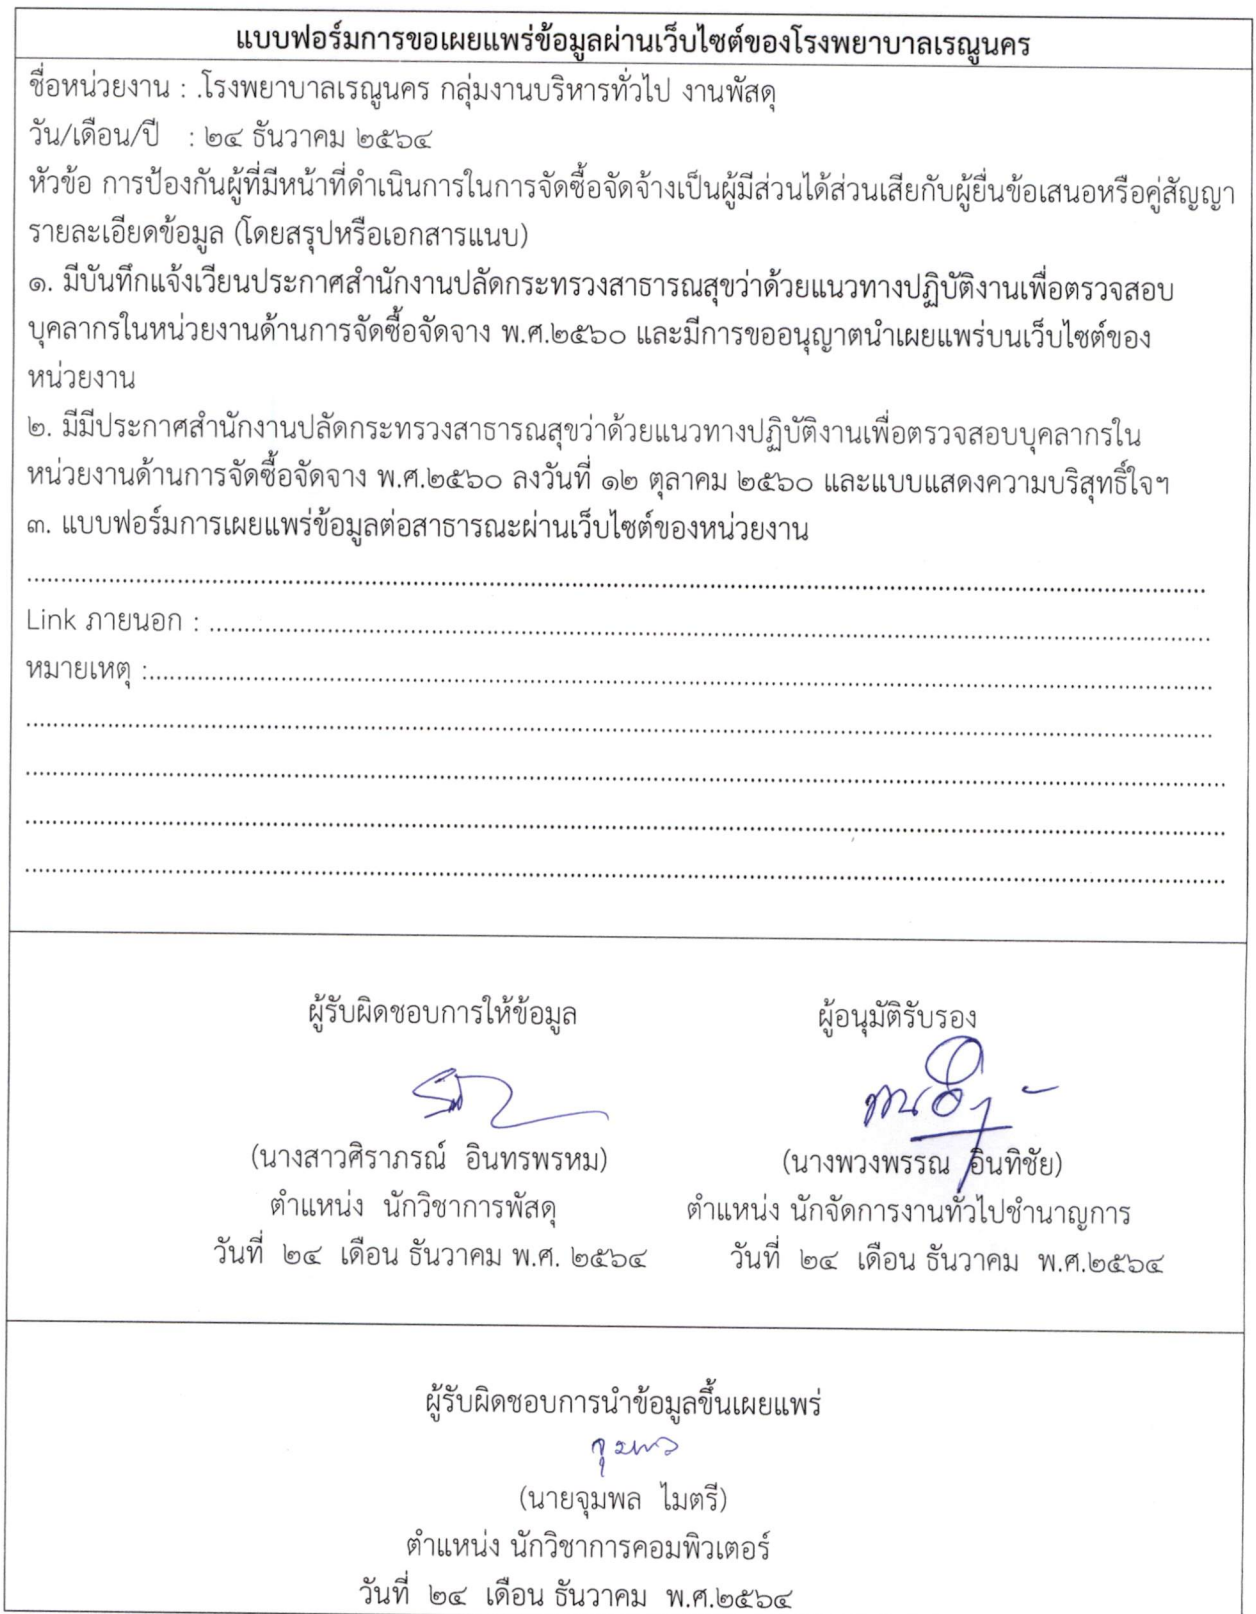 แบบฟอร์มการขอเผยแพร่ข้อมูลผ่านเว็บไซต์ของโรงพยาบาลเรณูนคร
ชื่อหน่วยงาน : .โรงพยาบาลเรณูนคร กลุ่มงานบริหารทั่วไป งานพัสดุ
วัน/เดือน/ปี : ๒๔ ธันวาคม ๒๕๖๔
หัวข้อ การป้องกันผู้ที่มีหน้าที่ดำเนินการในการจัดซื้อจัดจ้างเป็นผู้มีส่วนได้ส่วนเสียกับผู้ยื่นข้อเสนอหรือคู่สัญญา
รายละเอียดข้อมูล (โดยสรุปหรือเอกสารแนบ)
๑. มีบันทึกแจ้งเวียนประกาศสำนักงานปลัดกระทรวงสาธารณสุขว่าด้วยแนวทางปฏิบัติงานเพื่อตรวจสอบ
บุคลากรในหน่วยงานด้านการจัดซื้อจัดจาง พ.ศ.๒๕๖๐ และมีการขออนุญาตนำเผยแพร่บนเว็บไซต์ของ
หน่วยงาน
๒. มีมีประกาศสำนักงานปลัดกระทรวงสาธารณสุขว่าด้วยแนวทางปฏิบัติงานเพื่อตรวจสอบบุคลากรใน
หน่วยงานด้านการจัดซื้อจัดจาง พ.ศ.๒๕๖๐ ลงวันที่ ๑๒ ตุลาคม ๒๕๖๐ และแบบแสดงความบริสุทธิ์ใจฯ
๓. แบบฟอร์มการเผยแพร่ข้อมูลต่อสาธารณะผ่านเว็บไซต์ของหน่วยงาน
Link ภายนอก :
หมายเหตุ :
ผู้รับผิดชอบการให้ข้อมูล ผู้อนุมัติรับรอง
(นางสาวศิราภรณ์ อินทรพรหม) (นางพวงพรรณ อินทิชัย)
ตำแหน่ง นักวิชาการพัสดุ ตำแหน่ง นักจัดการงานทั่วไปชำนาญการ
วันที่ ๒๔ เดือน ธันวาคม พ.ศ. ๒๕๖๔ วันที่ ๒๔ เดือน ธันวาคม พ.ศ.๒๕๖๔
ผู้รับผิดชอบการนำข้อมูลขึ้นเผยแพร่
จุมพล
(นายจุมพล ไมตรี)
ตำแหน่ง นักวิชาการคอมพิวเตอร์
วันที่ ๒๔ เดือน ธันวาคม พ.ศ.๒๕๖๔